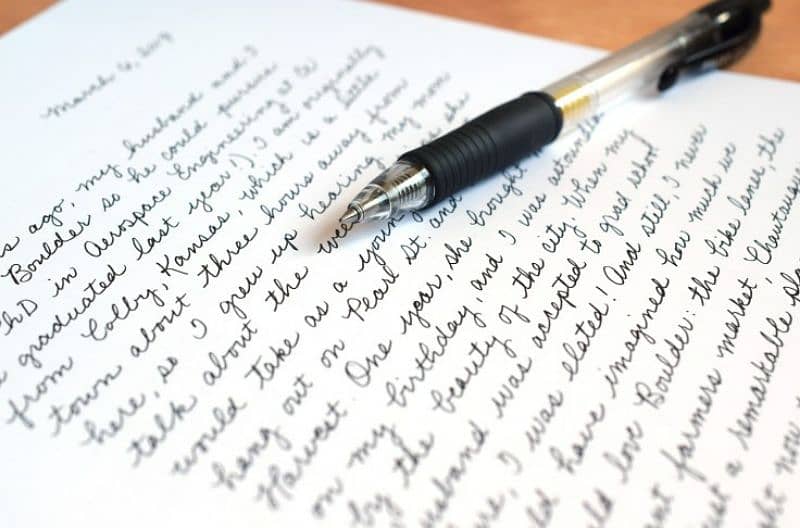 March 6, 2017
ago, my husband and I
Boulder so he could pursue
PhD in Aerospace Engineering at
graduated last year!). I am originally
from Colby, Kansas, which is a little
town about three hours away from
here, so I grew up hearing my mom
talk about the
would take as a young
hang out on Pearl St. and
Harvest. One year, she brought
on my birthday, and I was astounded
by the beauty of the city. When my
husband was accepted to grad school
I was elated! And still, I never
have imagined how much we
love Boulder: the bike lanes, the
farmers market, Chautauqua
a remarkable
now